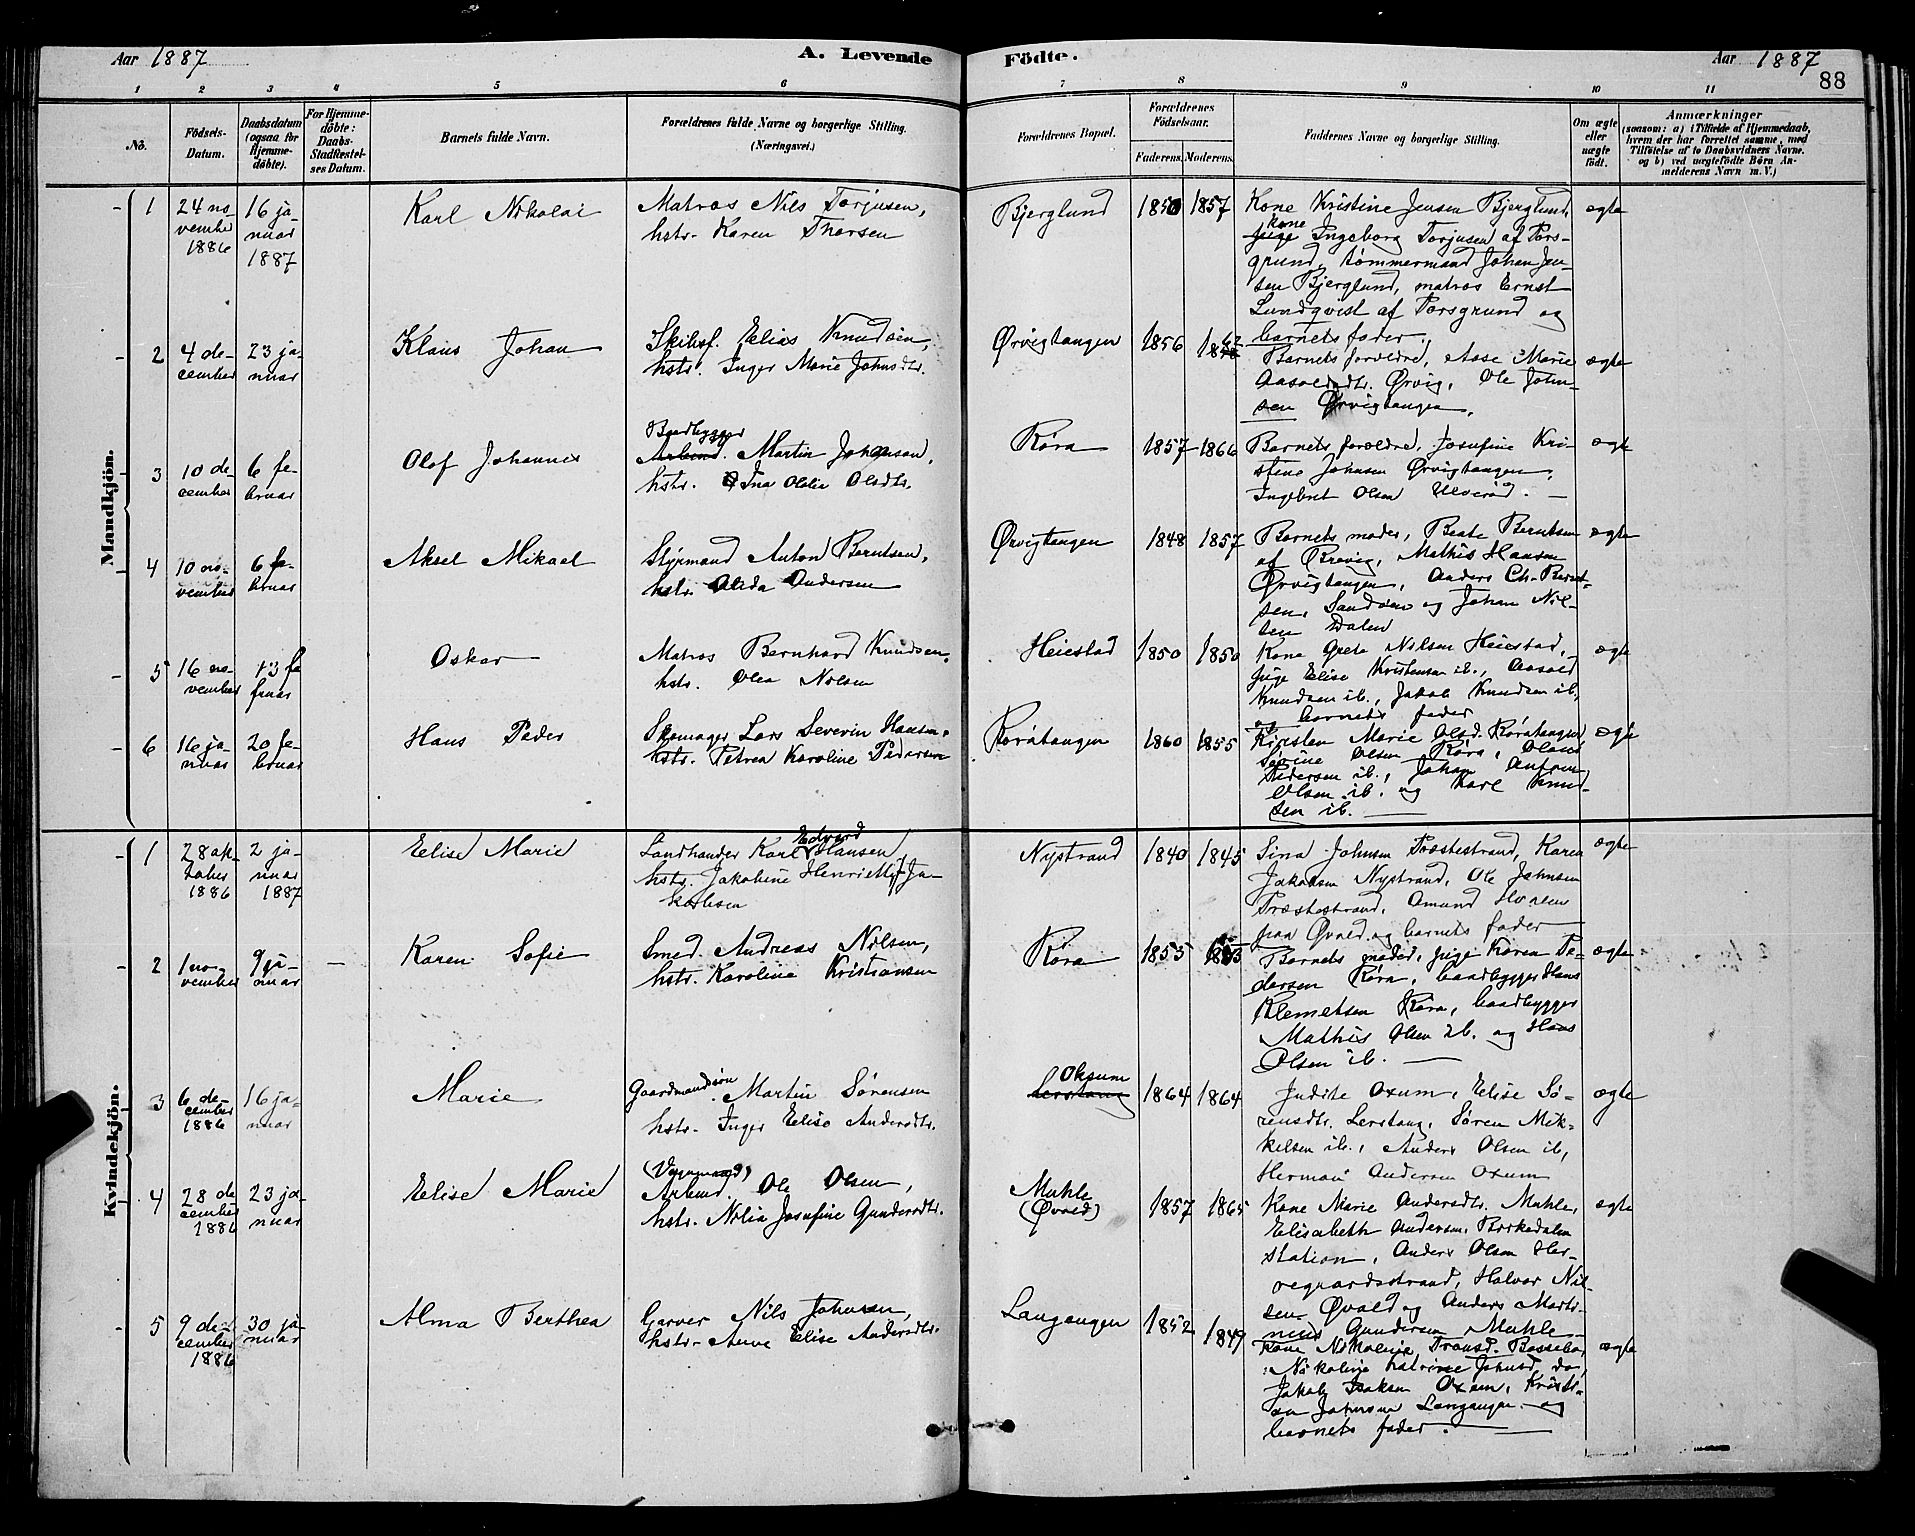 Aar 1887
A. Levende
Födte.
Aar 1887
88
1 2 3 4 5 6 7 8 9 10 11
No.
Födsels-
Datum.
Daabsdatum
(ogsaa for
Hjemme-
döbte).
For Hjemme-
döbte:
Daabs-
Stadfæstel-
ses Datum.
Barnets fulde Navn.
Forældrenes fulde Navne og borgerlige Stilling.
(Næringsvei.)
Forældrenes Bopæl.
Forældrenes
Födselsaar.
Faderens. Moderens.
Faddernes Navne og borgerlige Stilling.
Om ægte
eller
uægte
födt.
Anmærkninger
(saasom: a) i Tilfælde af Hjemmedaab,
hvem der har forrettet samme, med
Tilföielse af to Daabsvidners Navne.
og b) ved uægtefödte Börn An-
melderens Navn m. V.)
Mandkjön.
1
24 no-
vember
1886
16 ja-
nuar
1887
Karl Nikolai
Matros Nils Torjusen,
hstr. Karen Thorsen
Bjerglund
1850
1857
Kone Kristine Jensen Bjerglund,
kone
pige Ingeborg Torjusen af Pors-
grund, tømmermand Johan Jen-
sen Bjerglund, matros Ernst
Lundqvist af Porsgrund og
barnets fader.
ægte
2
4 de-
cember
23 ja-
nuar
Klaus Johan
Skibsf. Elias Knudsen,
hstr. Inger Marie Johnsdtr.
Ørvigtangen
1856
1862
Barnets forældre, Aase Marie
Aasoldsdtr. Ørvig, Ole John-
sen Ørvigtangen,
ægte
3
10 de-
cember
6 fe-
bruar
Olof Johannes
Baadbygger
Arbeid. Martin Johansen,
hstr. Ina Olelia Olsdtr.
Røra
1857
1866
Barnets forældre, Josefine Kri-
stine Johnsen Ørvigtangen,
Ingebret Olsen
ægte
4
10 no-
vember
6 fe-
bruar
Aksel Mikael
Styrmand Anton Berntsen,
hstr. Olida Andersen
Ørvigtangen
1848
1857
Barnets moder, Beate Berntsen
af Brevig, Mathis Hansen
Ørvigtangen, Anders Ch. Bernt-
sen, Sandøen og Johan Nil-
sen Dalen
ægte
5
16 no-
vember
13 fe
bruar
Oskar
Matros Bernhard Knudsen,
hstr. Olea Nilsen
Heiestad
1850
1850
Kone Grete Nilsen Heiestad,
Pige Elise Kristensen ib., Aasold
Knudsen ib., Jakob Knudsen ib,
og barnets fader
ægte
6
16 ja-
nuar
20 fe-
bruar
Hans Peder
Skomager Lars Severin Hansen,
hstr. Petrea Karoline Pedersen
Røratangen
1860
1855
Kirsten Marie Olsd. Røratangen
Sørine Olsen Røra,
Pedersen ib., Johan Anton
Olsen ib. og Karl Knud-
sen ib.
ægte
Kvindekjön.
1
28 ok-
tober
1886
2 ja-
nuar
1887
Elise Marie
Edvard
Landhandler Karl Hansen,
hstr. Jakobine Henriette Ja-
kobsen
Nystrand
1840
1845
Sina Johnsen Præstestrand, Karen
Jakobsen Nystrand, Ole Johnsen
Præstestrand, Amund
paa Øvald og barnets fader
ægte
2
1 no-
vember
9 ja-
nuar
Karen Sofie
Smed. Andreas Nilsen,
hstr. Karoline Kristiansen
Røra
1853
Barnets moder, pige Karen Pe-
dersen Røra, baadbygger Hans
Klemetsen Røra, baadbygger
Mathis Olsen ib. og Hans
Olsen ib.
ægte
3
6 de-
cember
1886
16 ja-
nuar
Marie
Gaardmandssøn Martin Sørensen
hstr. Inger Elise Andersdtr.
Oksum
Lerstang
1864
1864
Judite Oxum, Elise Sø-
rensdtr. Lerstang, Søren Mik-
kelsen ib., Anders Olsen ib,
Herman Andersen Oxum
ægte
4
28 de
cember
1886
23 ja-
nuar
Elise Marie
Arbeid. Ole Olsen,
hstr. Nilia Josefine Gundersdtr.
Muhle
(Øvald)
1857
1865
Kone Marie Andersdtr. Muhle,
Elisabeth Andersen, Birkedalen
station, Anders Olsen Her-
regaardsstrand, Halvor Nil-
sen Øvald og Anders Marti-
nius Gundersen Muhle
ægte
5
9 de-
cember
1886
30 ja-
nuar
Alma Berthea
Garver Nils Johnsen,
hstr. Anne Elise Andersdtr.
Langangen
1852
1849
Kone Nikoline Bassebo,
Nikoline Katrine Johnsd. do,
Jakob Isaksen Oxum, Kristi-
an Johnsen Langangen og
barnets fader.
ægte